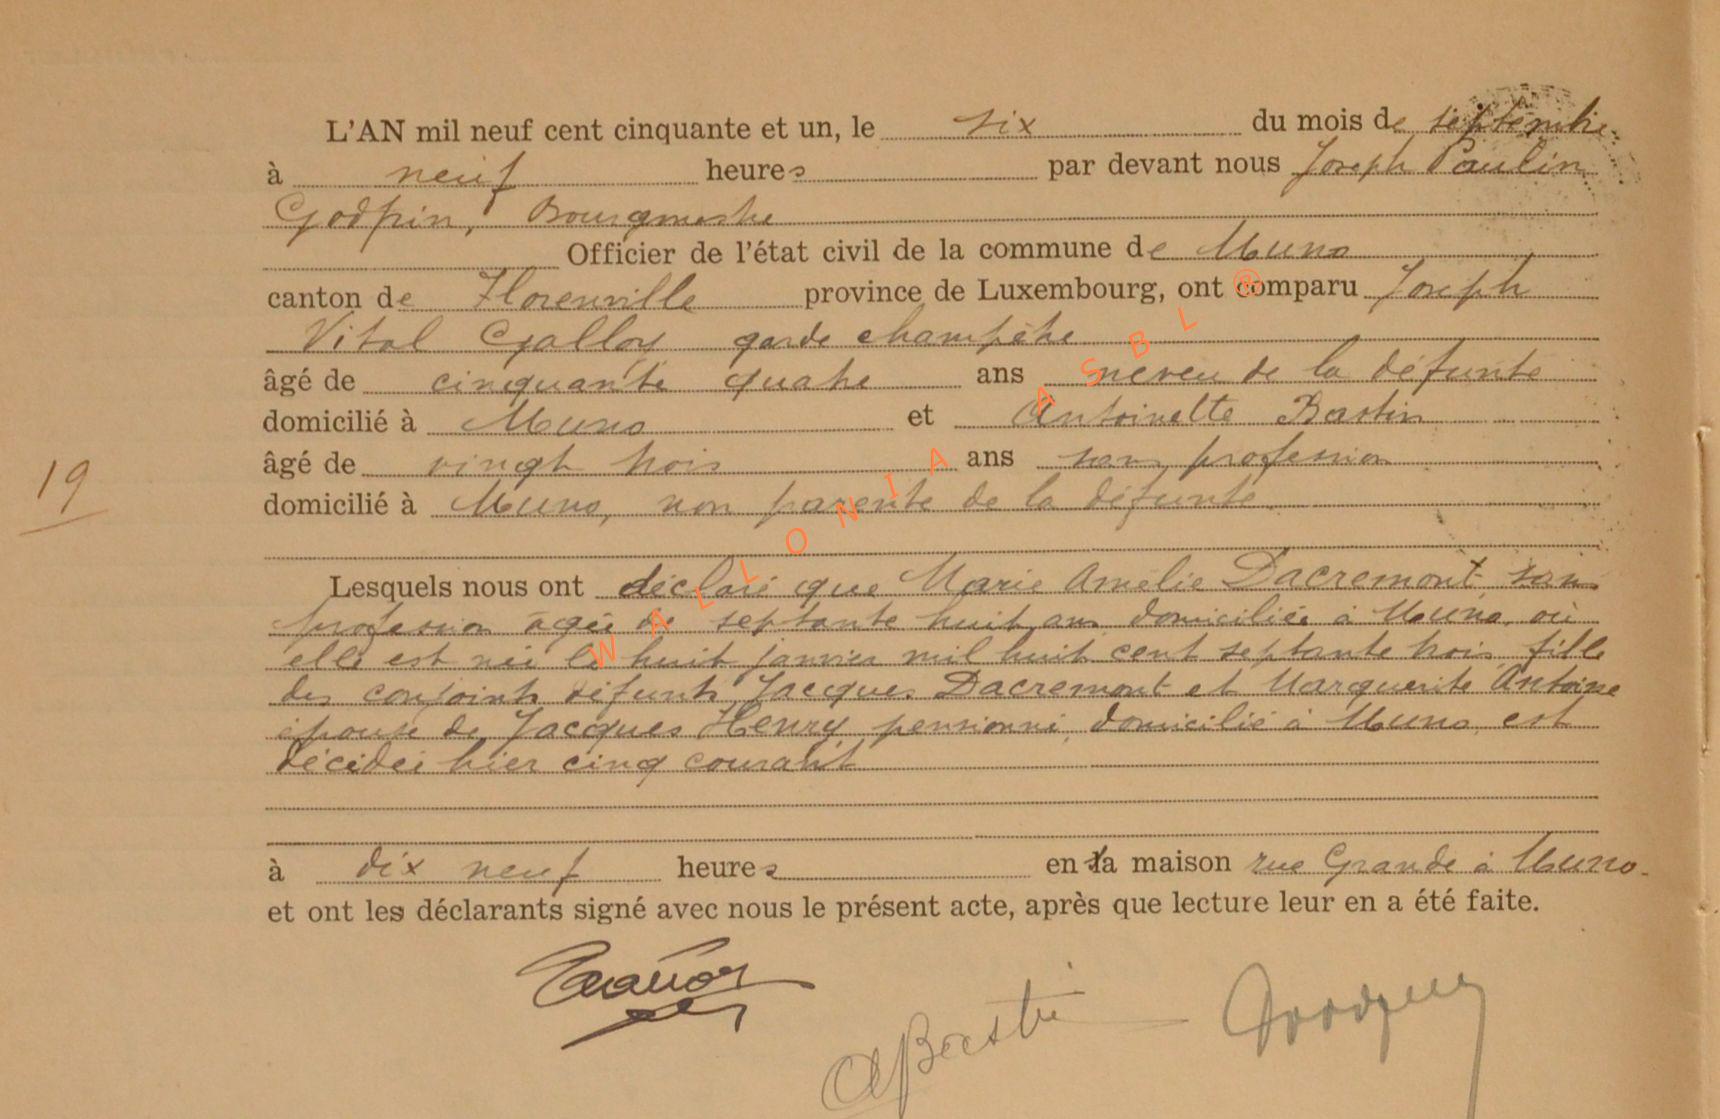 L'AN mil neuf cent cinquante et un, le six du mois de septembre
à neuf heures par devant nous Joseph Paulin
Godfrin, Bourgmestre
Officier de l'état civil de la commune de Muno
canton de Florenville province de Luxembourg, ont comparu Joseph
Vital Galloy garde champêtre
âgé de cinquante quatre ans neveu de la défunte
domicilié à Muno et Antoinette Bastin
âgé de vingt trois ans sans profession
19
domicilié à Muno, non parente de la défunte
Lesquels nous ont déclaré que Marie Amélie Dacremont sans
profession âgée de septante huit ans domiciliée à Muno, où
elle est née le huit janvier mil huit cent septante trois, fille
des conjoints défunts Jacques Dacremont et Marguerite Antoine
épouse de Jacques Henry pensionné, domicilié à Muno, est
décédée hier cinq courant
à dix neuf heures en sa maison rue Grande à Muno.
et ont les déclarants signé avec nous le présent acte, après que lecture leur en a été faite.
A Bastin
WALLONIA ASBL ®